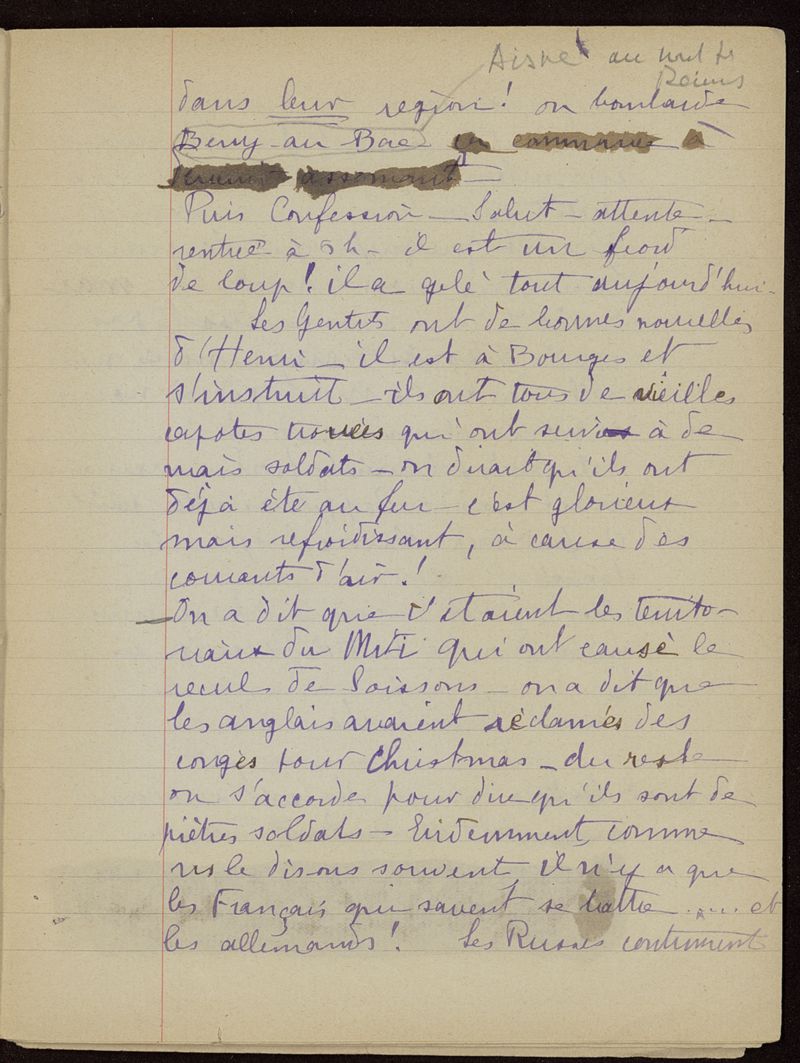 Aisne au nord de
Reims
dans leur region! on bombarde
Berry-au Bac en commence à
assomant =
Puis Confession — Salut — attente —
rentrée à 5h — il est un froid
de loup! il a gelé tout aujourd'hui.
Les Gentils ont de bonnes nouvelles
d'Henri — il est à Bourges et
s'instruit — ils ont tous de vieilles
capotes trouées qui ont servies à de
mais soldats — on dirait qu'ils ont
déjà été au feu — c'est glorieux
mais refroidissant, à cause des
courants d'air!
— On a dit que c'étaient les territo-
riaux du Midi qui ont causé le
recul de Soissons — on a dit que
les anglais avaient réclamés des
congés pour Christmas — du reste
on s'accorde pour dire qu'ils sont de
piètres soldats — Evidemment, comme
ns le disons souvent, il n'y a que
les Français qui savent se battre ..... et
les allemands! Les Russes continuent